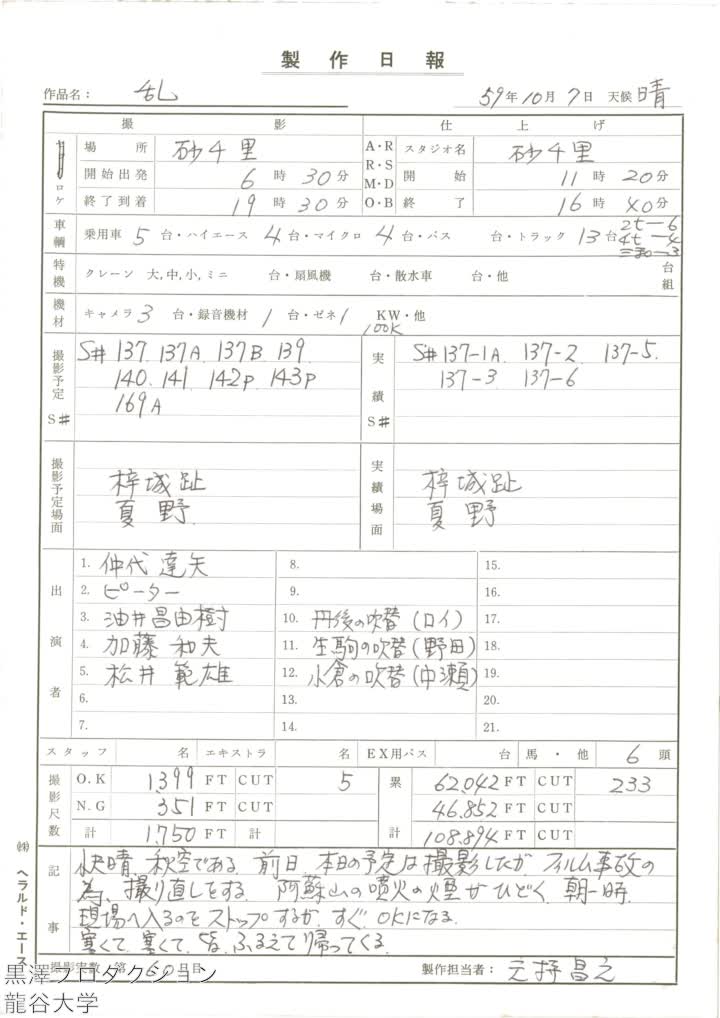 製作日報
作品名: 乱 59年10月7日 天候 晴
撮影 仕上げ
ロケ 場所 砂千里 A・R スタジオ名 砂千里
開始出発 6時30分 R・S 開始 11時20分
M・D
終了到着 19時30分 O・B 終了 16時40分
車輌 乗用車 5 台・ハイエース 4 台・マイクロ 4 台・バス 台・トラック 13 台 2t-6 4t-4
特機 クレーン 大,中,小,ミニ 台・扇風機 台・散水車 台・他 台組
機材 キャメラ 3 台・録音機材 1 台・ゼネ 1 100K KW・他
撮影予定 S# S# 137. 137A. 137B 139.
140. 141 142P. 143P
169A
実績 S# S# 137-1A. 137-2. 137-5.
137-3 137-6
撮影予定場面 梓城趾
夏野.
実績場面 梓城趾
夏野
出演者
1. 仲代達矢 8. 15.
2. ピーター 9. 16.
3. 油井昌由樹 10. 丹後の吹替(ロイ) 17.
4. 加藤和夫 11. 生駒の吹替(野田) 18.
5. 松井範雄 12. 小倉の吹替(中瀬) 19.
6. 13. 20.
7. 14. 21.
スタッフ 名 エキストラ 名 EX用バス 台 馬・他 6 頭
撮影尺数 O.K 1,399 FT CUT 5 累計 62,042 FT CUT 233
N.G 351 FT CUT 46,852 FT CUT
計 1,750 FT 計 計 108,894 FT CUT
記事 快晴. 秋空である. 前日 本日の予定は撮影したが フィルム事故の
為、撮り直しをする. 阿蘇山の噴火の煙がひどく. 朝一時.
現場へ入るのをストップするが. すぐ OKになる.
寒くて. 寒くて. 皆. ふるえて帰ってくる.
撮影実数 第 60 日目 製作担当者: 元持昌之
㈱ヘラルド・エース
黒澤プロダクション
龍谷大学